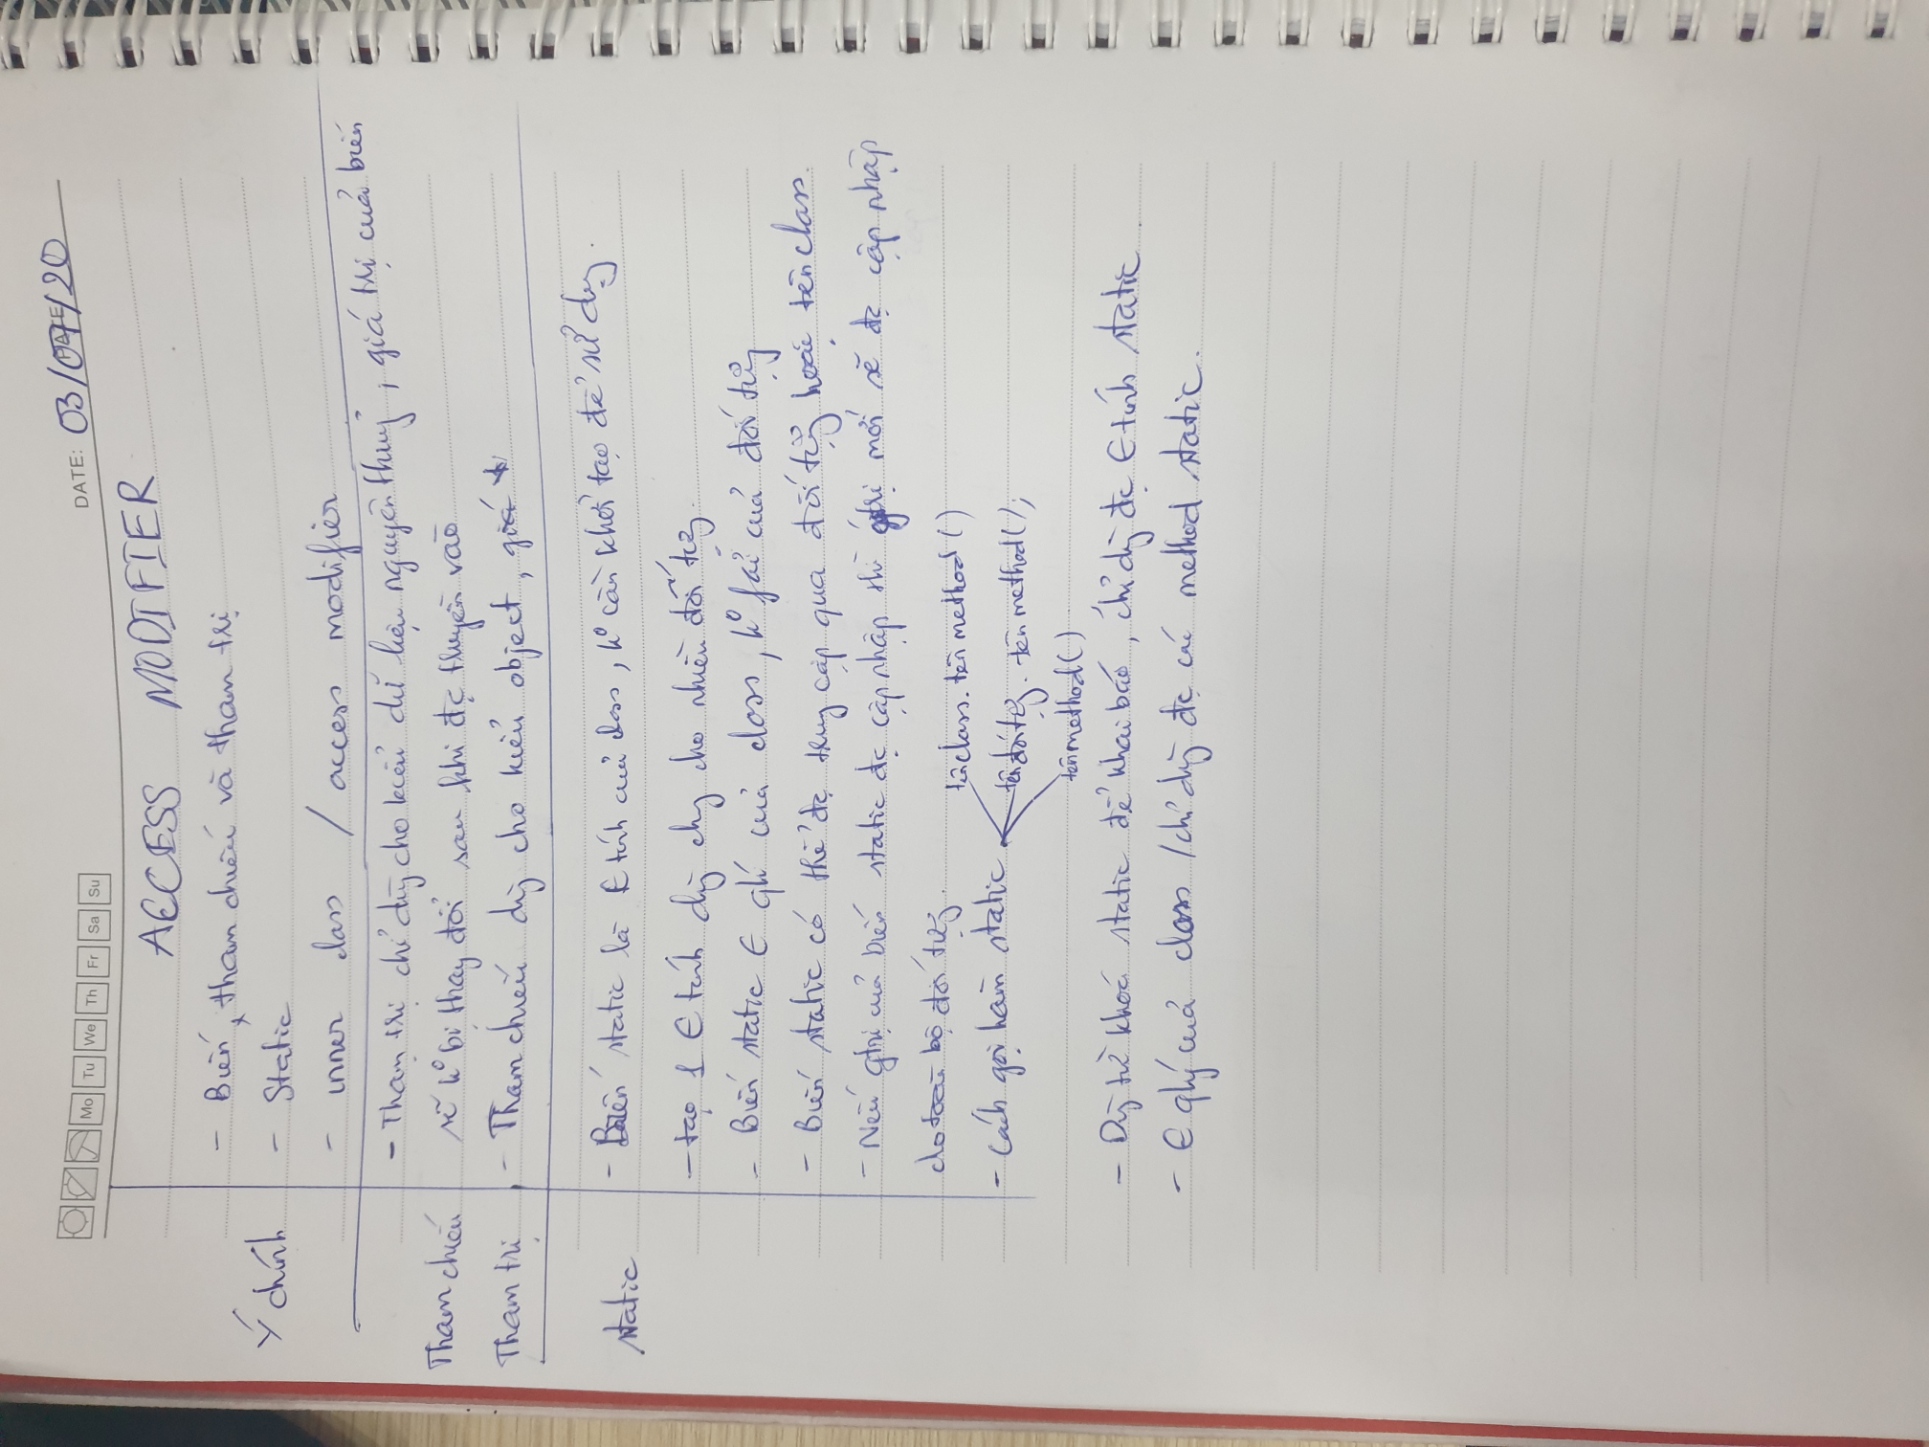 Mo Tu We Th Fr Sa Su
DATE: 03/07/20
ACCESS MODIFIER
Ý chính
- Biến, tham chiếu và tham trị
- Static
- inner class / access modifier
Tham chiếu
Tham trị
- Tham trị chỉ dùg cho kiểu dữ liệu nguyên thuỷ, giá trị của biến
sẽ k° bị thay đổi sau khi đc truyền vào
- Tham chiếu dùg cho kiểu object, giá
static
- Biến static là ∈ tính của class, k° cần khởi tạo để sử dụg.
- tạo 1 ∈ tính dùg chg cho nhiều đối tượg.
- Biến static ∈ qlí của class, k° fải của đối tượg
- Biến static có thể đc truy cập qua đối tượg hoặc tên class.
- Nếu gtrị của biến static đc cập nhập thì gtrị mới sẽ đc cập nhập
cho toàn bộ đối tượg.
- Cách gọi hàm static
tên class. tên method ()
tên đối tượg. tên method();
tên method()
- Dùg từ khoá static để khai báo, chỉ dùg đc ∈ tính static
- ∈ qlý của class / chỉ dùg đc các method static.